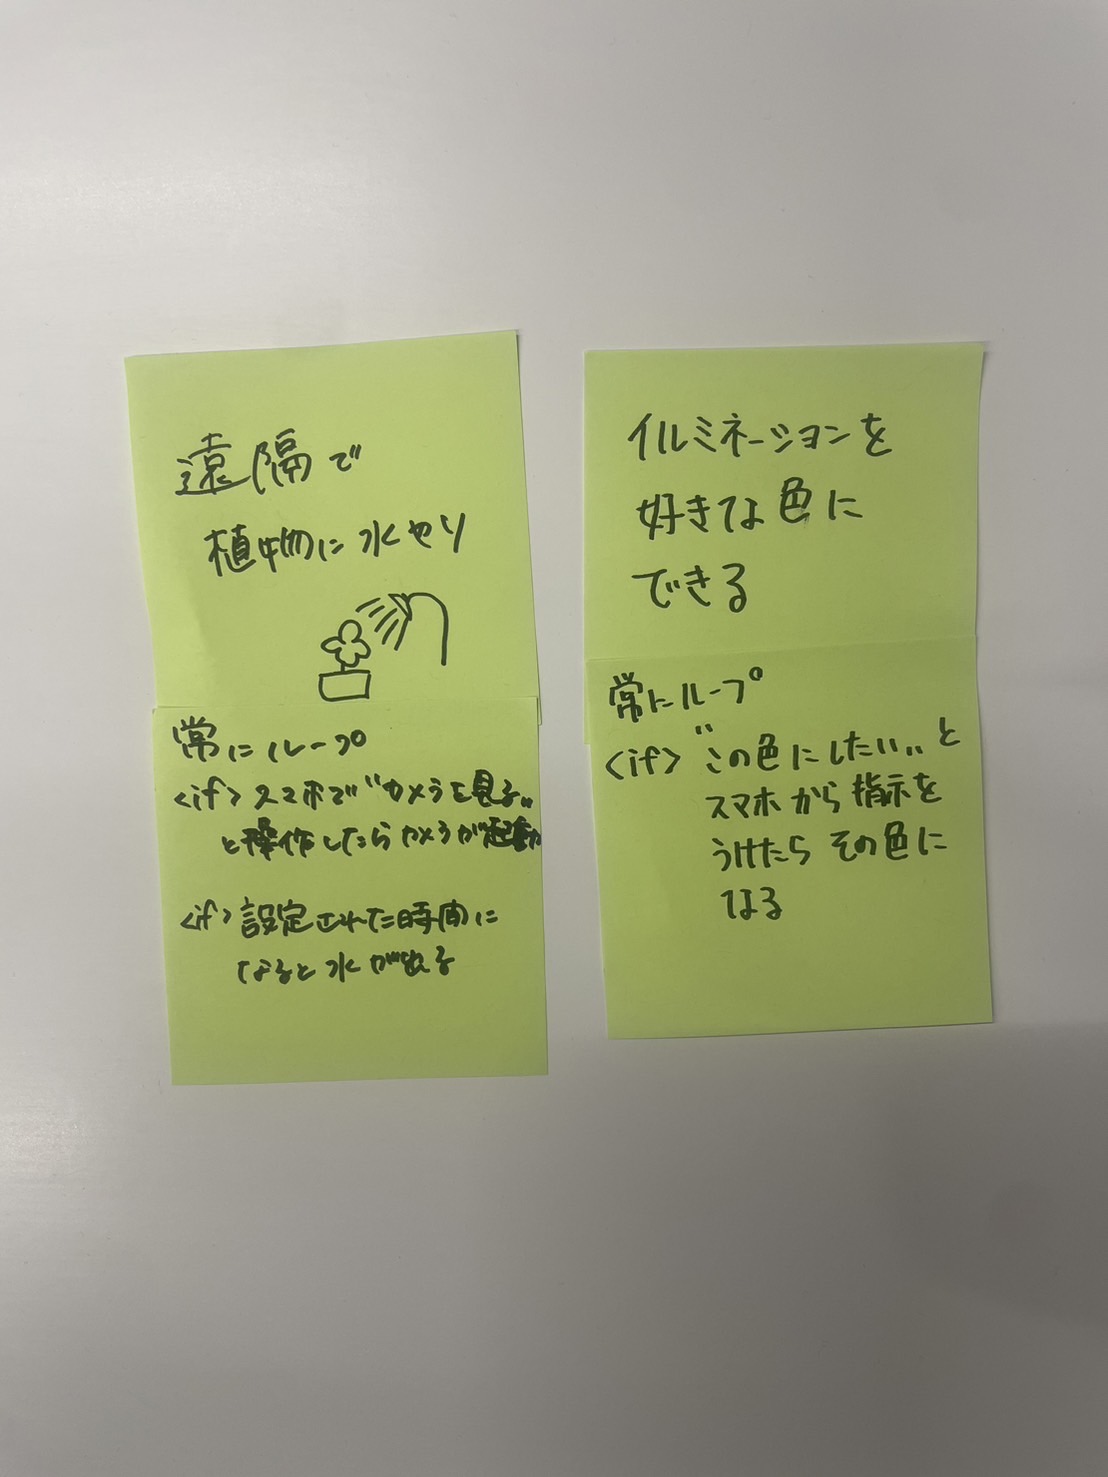 遠隔で
植物に水やり
常にループ
<if>スマホで"カメラを見る"
と操作したらカメラが起動
<if>設定された時間に
なると水が出る
イルミネーションを
好きな色に
できる
常にループ
<if>"この色にしたい"と
スマホから指示を
うけたらその色に
なる